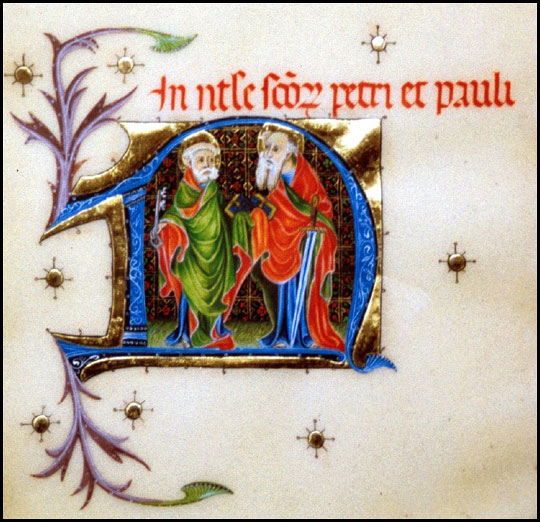 In ntle scōꝝ petri et pauli